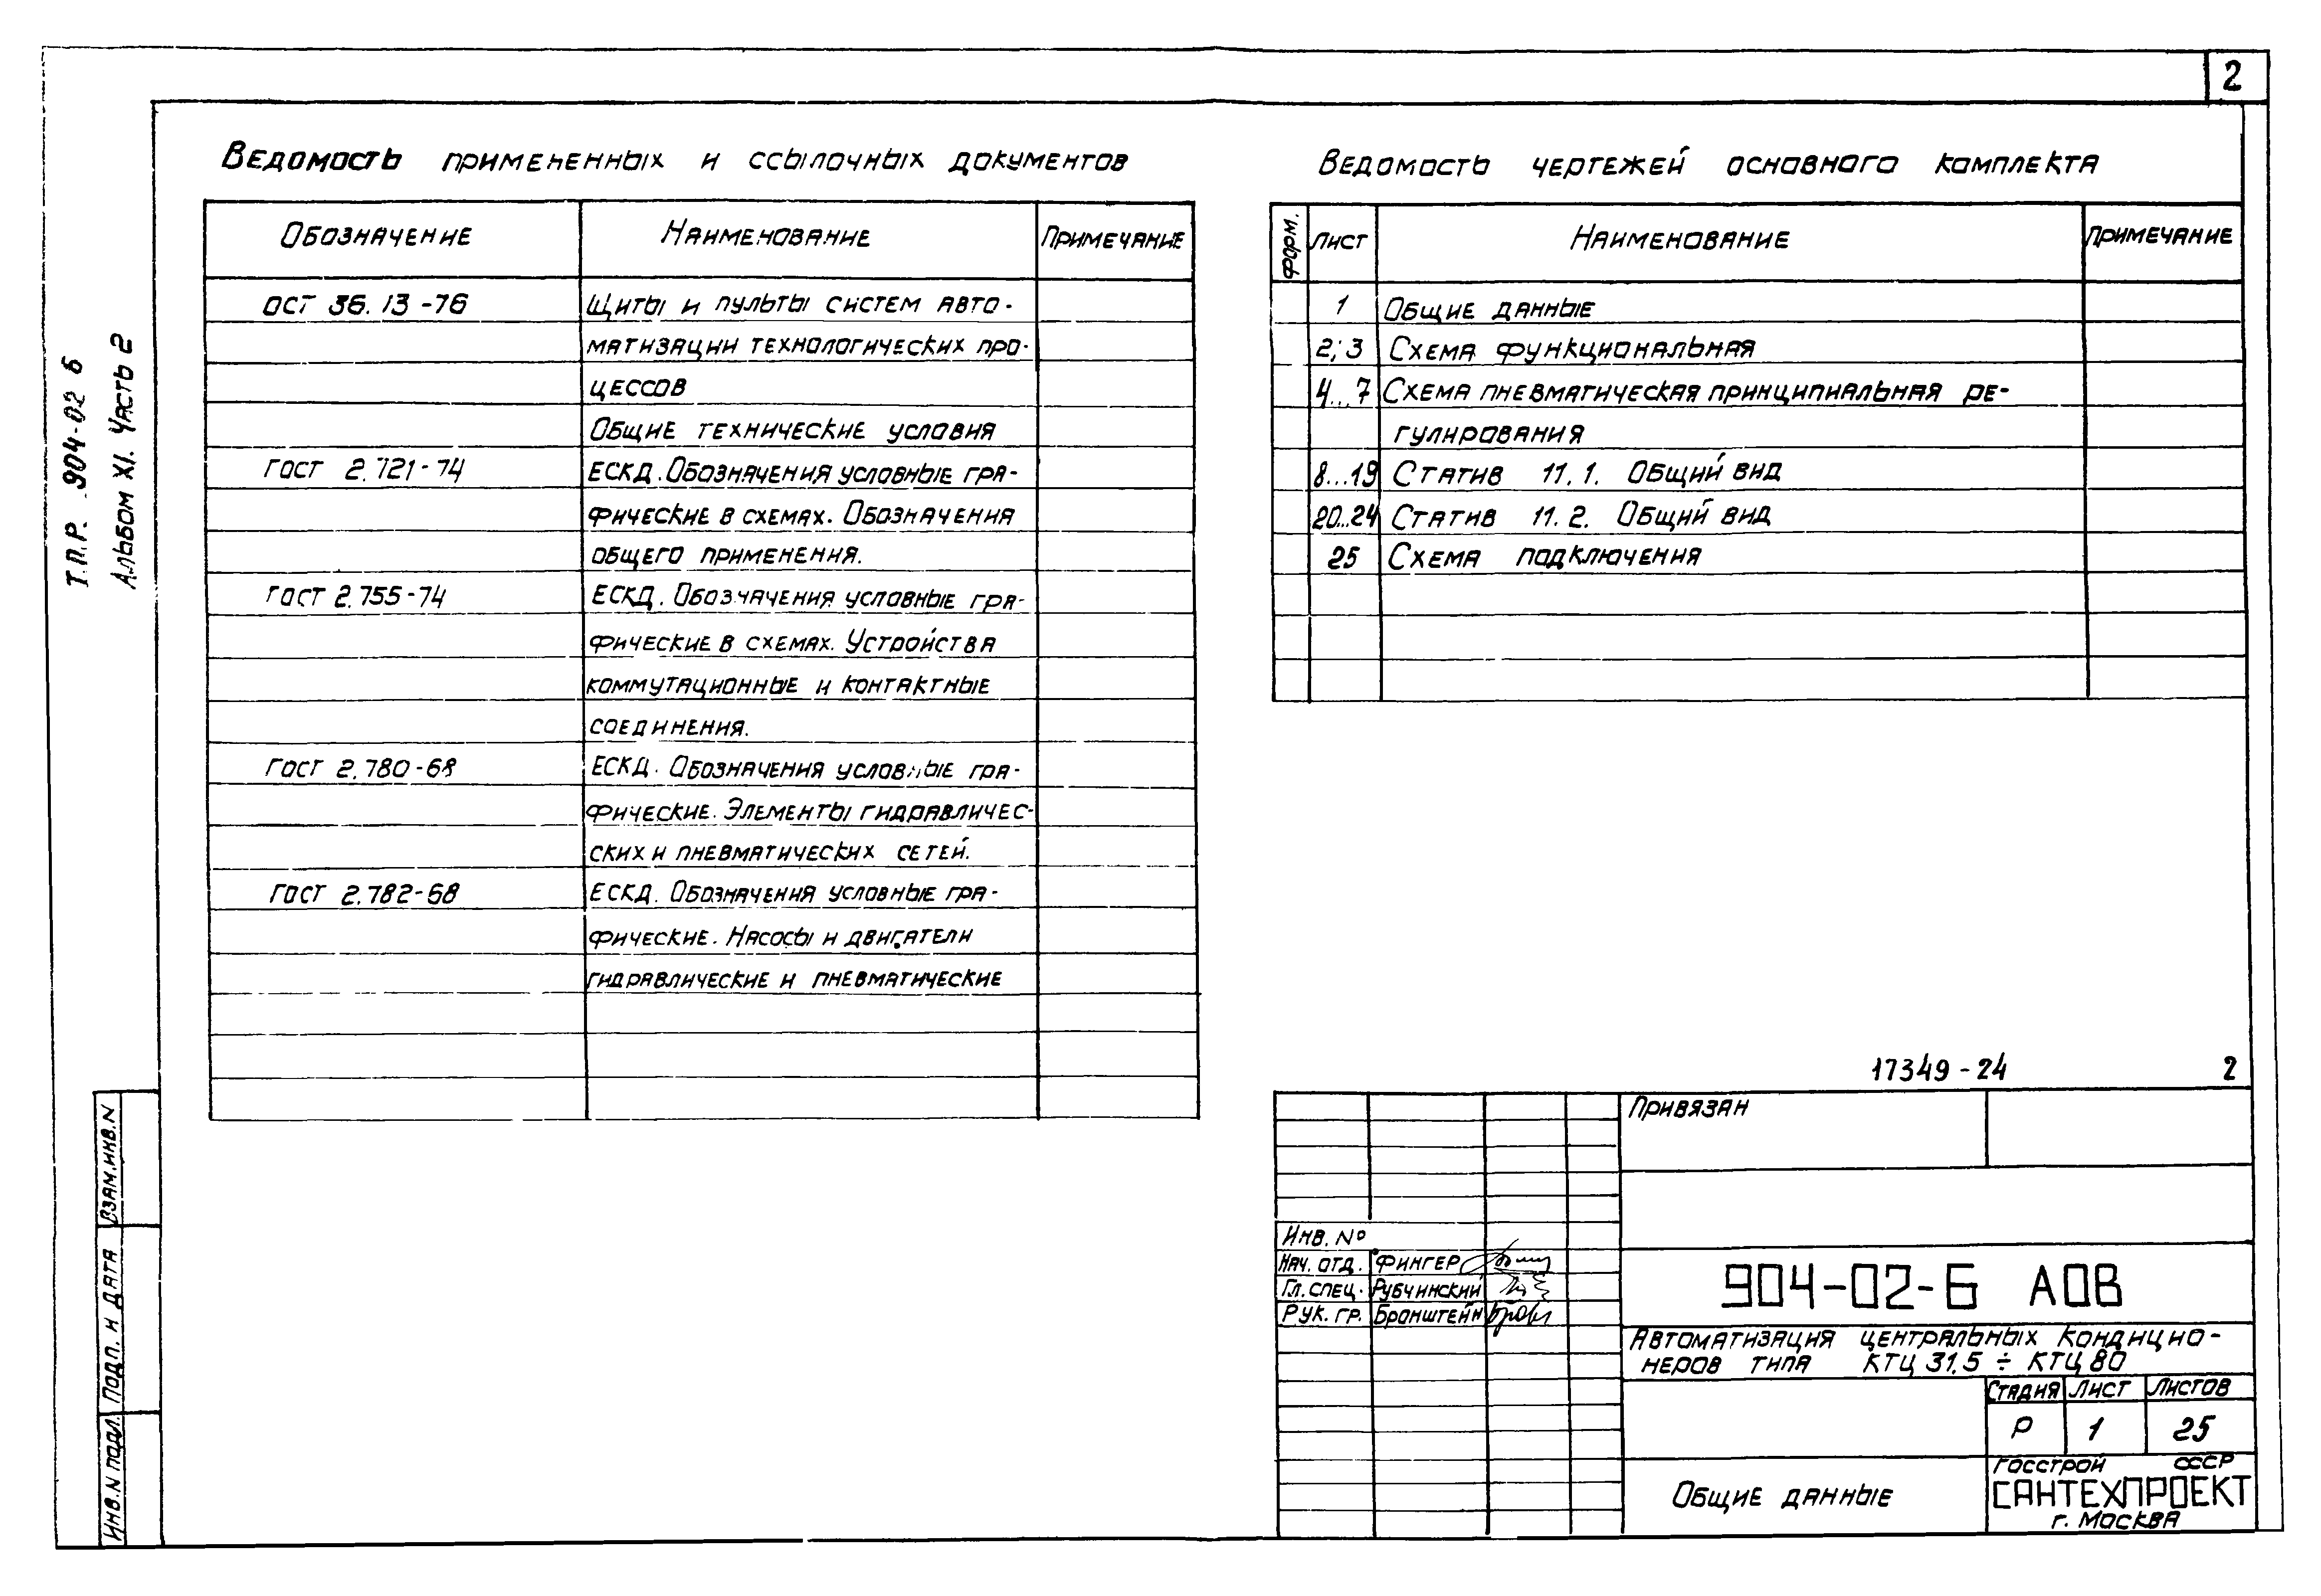 2
Т.П.Р. 904-02 Б
Альбом XI. Часть 2
Ведомость примененных и ссылочных документов
Обозначение Наименование Примечание
ОСТ 36.13-76 Щиты и пульты систем авто-
матизации технологических про-
цессов
Общие технические условия
ГОСТ 2.721-74 ЕСКД. Обозначения условные гра-
фические в схемах. Обозначения
общего применения.
ГОСТ 2.755-74 ЕСКД. Обозначения условные гра-
фические в схемах. Устройства
коммутационные и контактные
соединения.
ГОСТ 2.780-68 ЕСКД. Обозначения условные гра-
фические. Элементы гидравличес-
ских и пневматических сетей.
ГОСТ 2.782-68 ЕСКД. Обозначения условные гра-
фические. Насосы и двигатели
гидравлические и пневматические
Ведомость чертежей основного комплекта
Форм. Лист Наименование Примечание
1 Общие данные
2; 3 Схема функциональная
4...7 Схема пневматическая принципиальная ре-
гулирования
8...19 Статив 11.1. Общий вид
20...24 Статив 11.2. Общий вид
25 Схема подключения
17349-24 2
Привязан
Инв. №
Нач. отд. Фингер
Гл. спец. Рубчинский
Рук. гр. Бронштейн
904-02-Б АОВ
Автоматизация центральных кондицио-
неров типа КТЦ 31,5 ÷ КТЦ 80
Стадия Лист Листов
Р 1 25
Общие данные
Госстрой СССР
САНТЕХПРОЕКТ
г. Москва
Взам. инв. N
Подп. и дата
Инв. N подл.